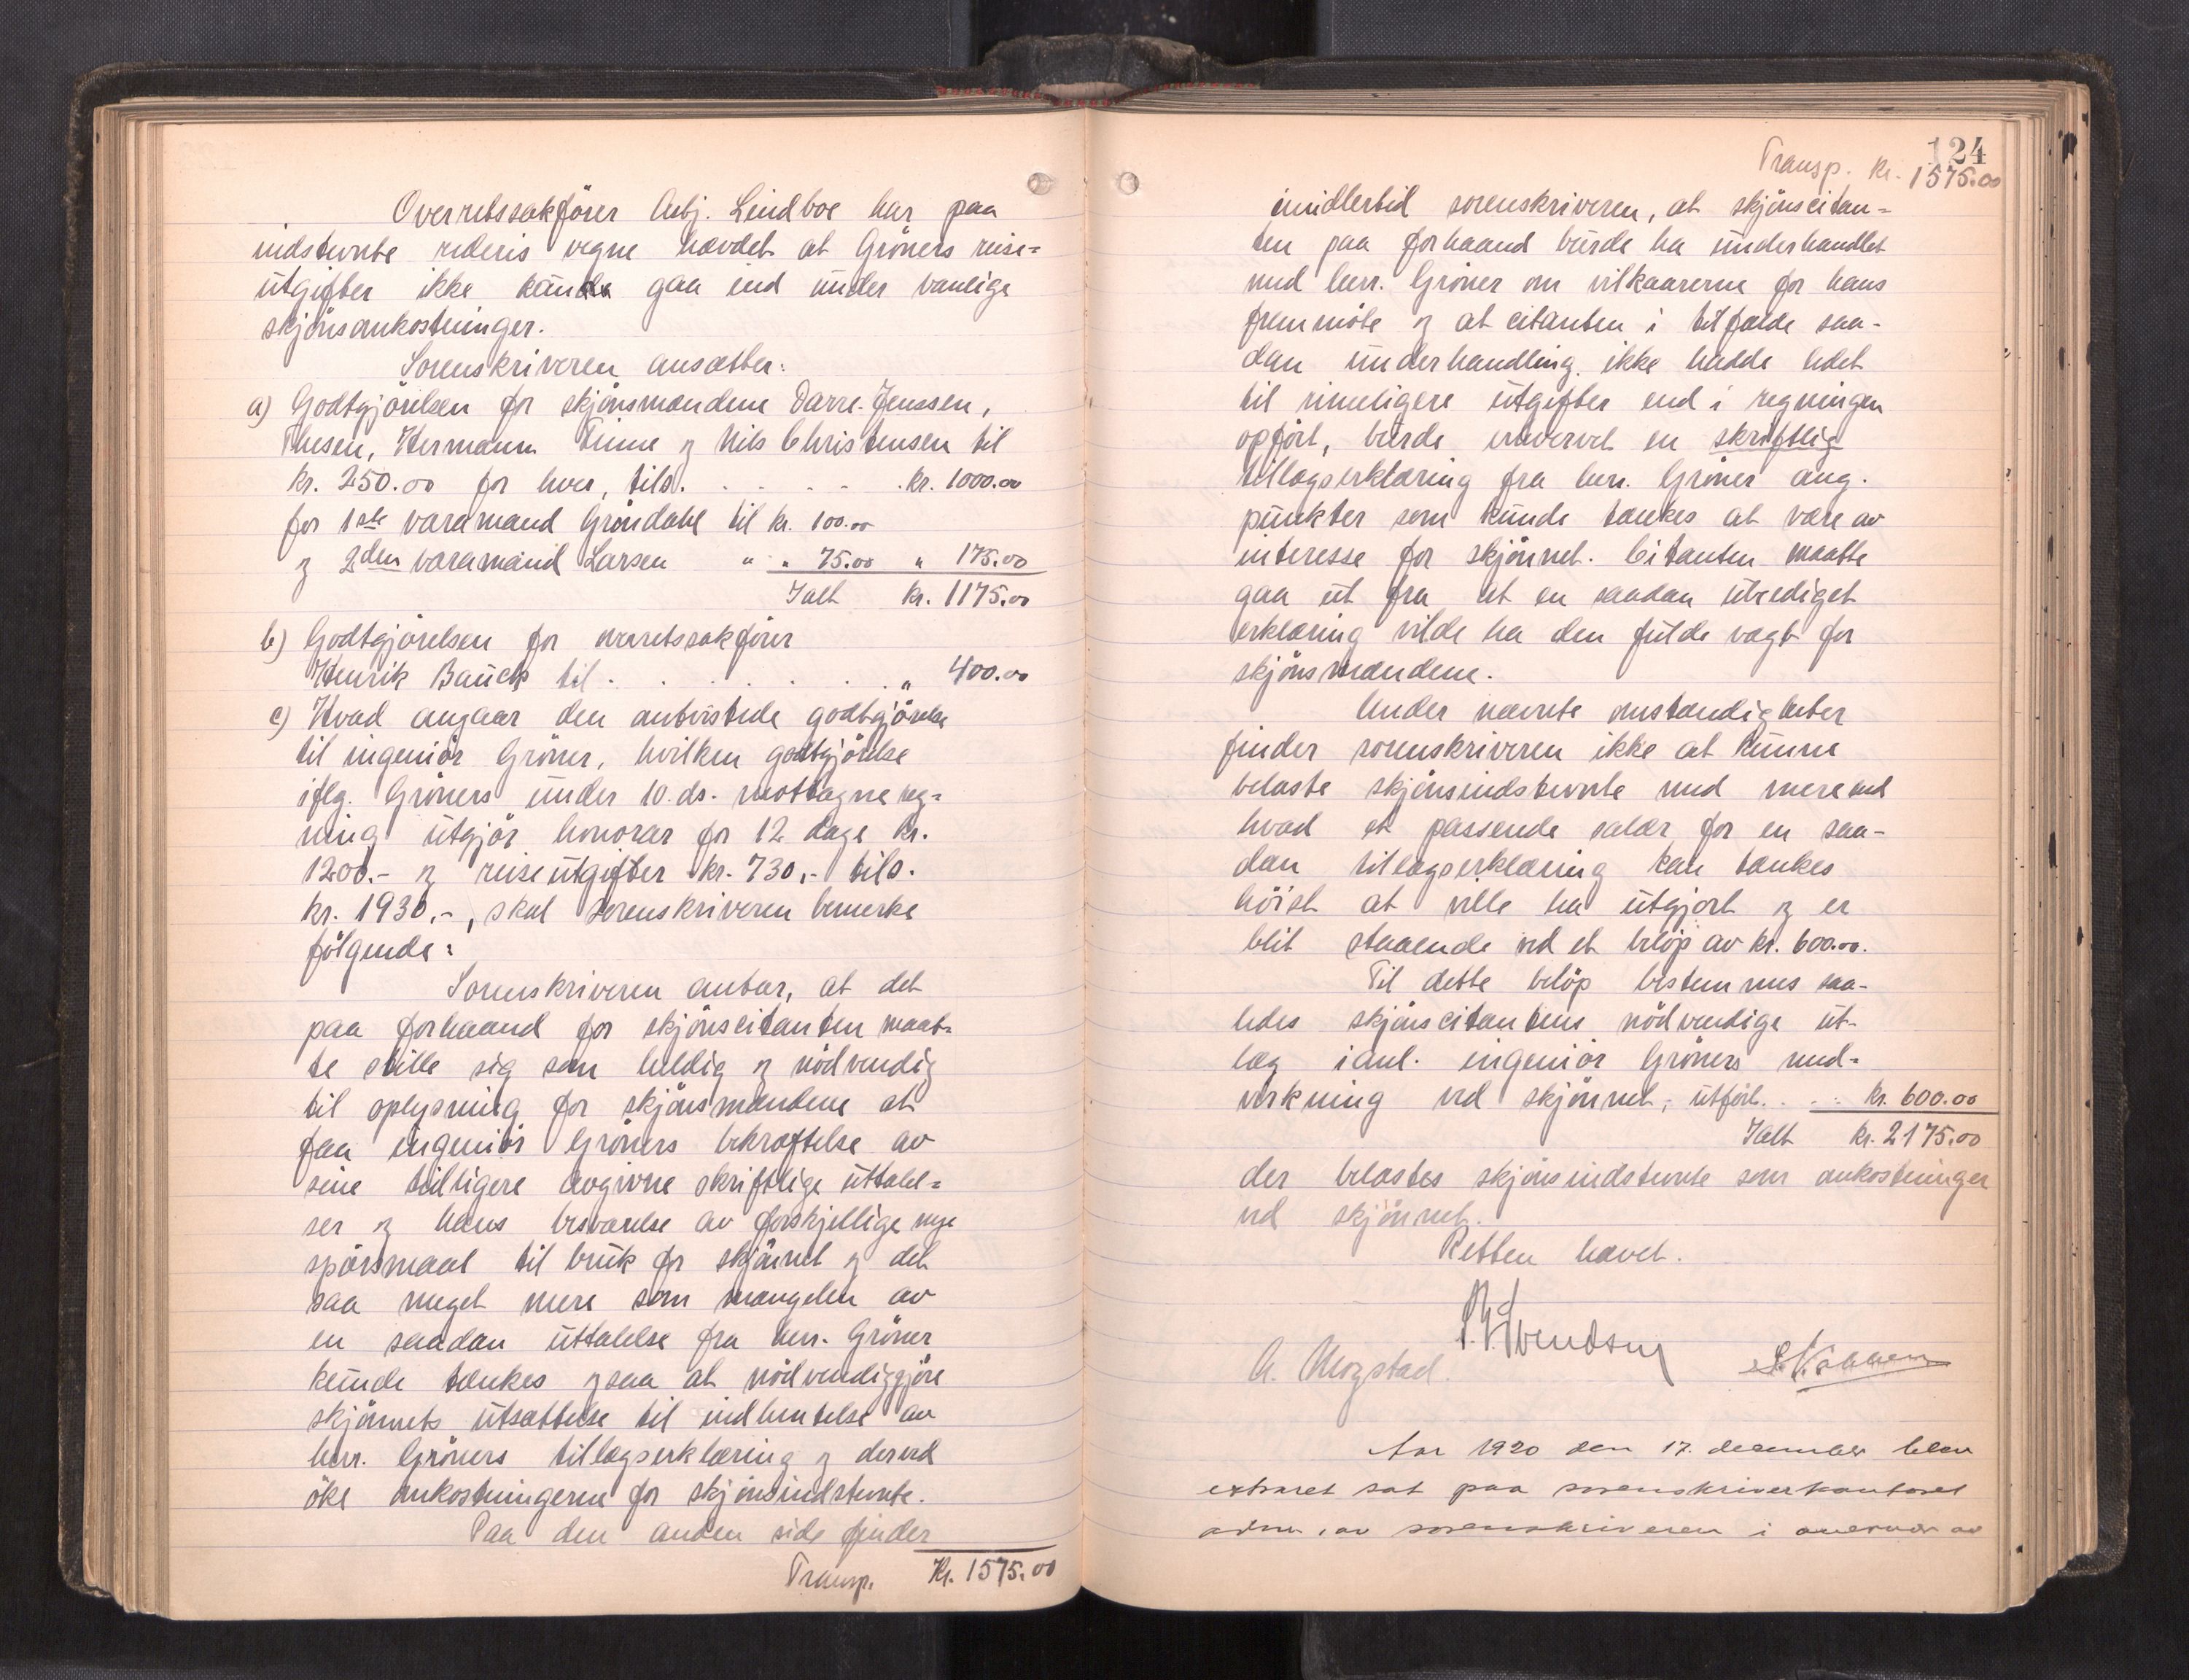 Overretssakfører Asbj. Lindboe har paa
indstevnte rederis vegne hævdet at Grøners reise=
utgifter ikke kunde gaa ind under vanlige
skjønsomkostninger.
Sorenskriveren ansætter:
a) Godtgjørelsen for skjønsmændene Darre-Jenssen,
Thesen, Hermann Finne og Nils Christensen til
kr. 250.00 for hver, tils. . . . . . kr. 1000.00
for 1ste varamand Grøndahl til kr. 100.00
og 2den varamand Larsen " " 75.00 " 175.00
Ialt kr. 1175.00
b) Godtgjørelsen for overretssakfører
Henrik Bauck til . . . . . . . " 400.00
c) Hvad angaar den omtvistede godtgjørelse
til ingeniør Grøner, hvilken godtgjørelse
iflg. Grøners under 10. ds. mottagne reg=
ning utgjør honorar for 12 dage kr.
1200.- og reiseutgifter kr. 730,- tils.
kr. 1930,-, skal sorenskriveren bemerke
følgende:
Sorenskriveren antar, at det
paa forhaand for skjønscitanten maat=
te stille sig som heldig og nødvendig
til oplysning for skjønsmændene at
faa ingeniør Grøners bekræftelse av
sine tidligere avgivne skriftlige uttalel=
ser og hans besvarelse av forskjellige nye
spørsmaal til bruk for skjønnet og det
saa meget mere som mangelen av
en saadan uttalelse fra herr. Grøner
kunde tænkes ogsaa at nødvendiggjøre
skjønnets utsættelse til indhentelse av
herr. Grøners tillægserklæring og derved
øke omkostningerne for skjønsindstevnte.
Paa den anden side finder
Transp. Kr. 1575.00
124
Transp. kr. 1575.00
imidlertid sorenskriveren, at skjønscitan=
ten paa forhaand burde ha underhandlet
med herr. Grøner om vilkaarene for hans
fremmøte og at citanten i tilfælde saa-
dan underhandling ikke hadde ledet
til rimeligere utgifter end i regningen
opført, burde erhvervet en skriftlig
tillægserklæring fra herr. Grøner ang.
punkter som kunde tænkes at være av
interesse for skjønnet. Citanten maatte
gaa ut fra at en saadan utbediget
erklæring vilde ha den fulde vægt for
skjønsmændene.
Under nævnte omstændigheter
finder sorenskriveren ikke at kunne
belaste skjønsindstevnte med mere end
hvad et passende salær for en saa-
dan tillægserklæring kan tænkes
høist at ville ha utgjort og er
blit staaende ved et beløp av kr. 600.00.
Til dette beløp bestemmes saa-
ledes skjønscitantens nødvendige ut-
læg i anl. ingeniør Grøners med=
virkning ved skjønnet, utført. . . . kr. 600.00
Ialt kr. 2175.00
der belastes skjønsindstevnte som omkostninger
ved skjønnet.
Retten hævet.
Svendsen
A. Mogstad.
Aar 1920 den 17. december blev
extraret sat paa sorenskriverkontoret
adm. av sorenskriveren i overvær av